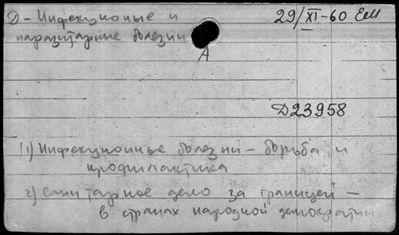 Д-Инфекционые и 29/XI-60 ЕМ
паразитарные болезни
А
Д23958
1) Инфекционные болезни - борьба и
профилактика
2) Санитарное дело за границей -
в странах народной демократии.